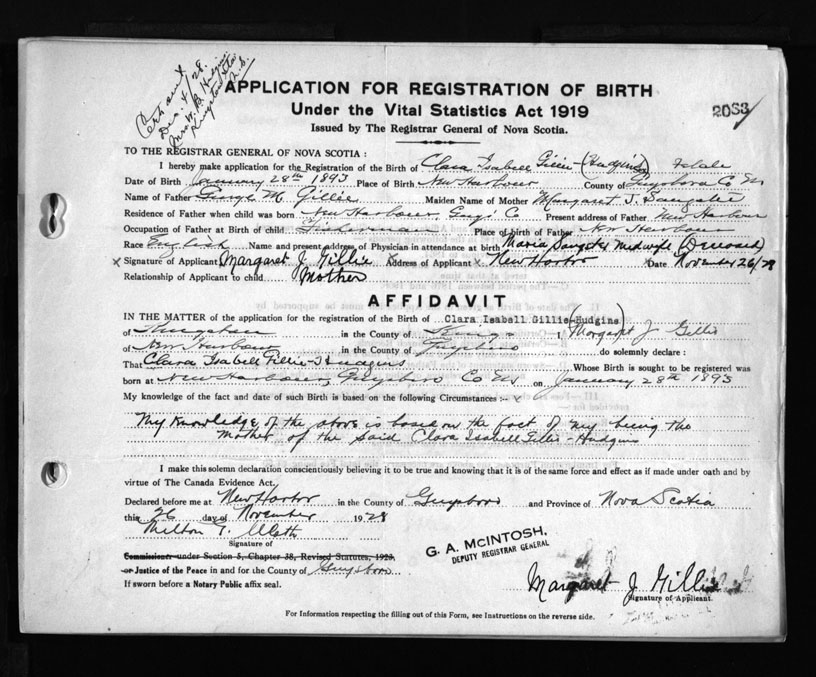 Cert sent
Dec. 4/28.
Mrs. W. B. Hudgins
Kingston Sta.
N.S.
APPLICATION FOR REGISTRATION OF BIRTH
Under the Vital Statistics Act 1919
Issued by The Registrar General of Nova Scotia.
TO THE REGISTRAR GENERAL OF NOVA SCOTIA :
I hereby make application for the Registration of the Birth of Clara Isabell Gillie-(Hudgins)
Date of Birth January 28th 1893 Place of Birth New Harbour County of Guysboro Co NS
Name of Father George M. Gillie Maiden Name of Mother Margaret J. Sangster
Residence of Father when child was born New Harbour Guys' Co Present address of Father New Harbour
Occupation of Father at Birth of child Fisherman Place of birth of Father New Harbour
Race English Name and present address of Physician in attendance at birth Maria Sangster Midwife (Deceased)
x Signature of Applicant Margaret J Gillie x Address of Applicant x New Harbor x Date November 26/28
Relationship of Applicant to child Mother
AFFIDAVIT
IN THE MATTER of the application for the registration of the Birth of Clara Isabell Gillie (-Hudgins)
of Kingston in the County of Kings I, Margaret J Gillie
of New Harbour in the County of Guysboro do solemnly declare :
That Clara Isabell Gillie-Hudgins Whose Birth is sought to be registered was
born at New Harbour, Guysboro Co NS on January 28th 1893
My knowledge of the fact and date of such Birth is based on the following Circumstances :- x
My Knowledge of the above is based on the fact of my being the
Mother of the said Clara Isabell Gillie-Hudgins
I make this solemn declaration conscientiously believing it to be true and knowing that it is of the same force and effect as if made under oath and by
virtue of The Canada Evidence Act.
Declared before me at New Harbor in the County of Guysboro and Province of Nova Scotia
this 26 day of November 1928
Milton T.
Signature of
Commissioner under Section 5, Chapter 38, Revised Statutes, 1923,
or Justice of the Peace in and for the County of Guysboro
If sworn before a Notary Public affix seal.
G. A. McINTOSH,
DEPUTY REGISTRAR GENERAL
Margaret J Gillie
Signature of Applicant.
For Information respecting the filling out of this Form, see Instructions on the reverse side.